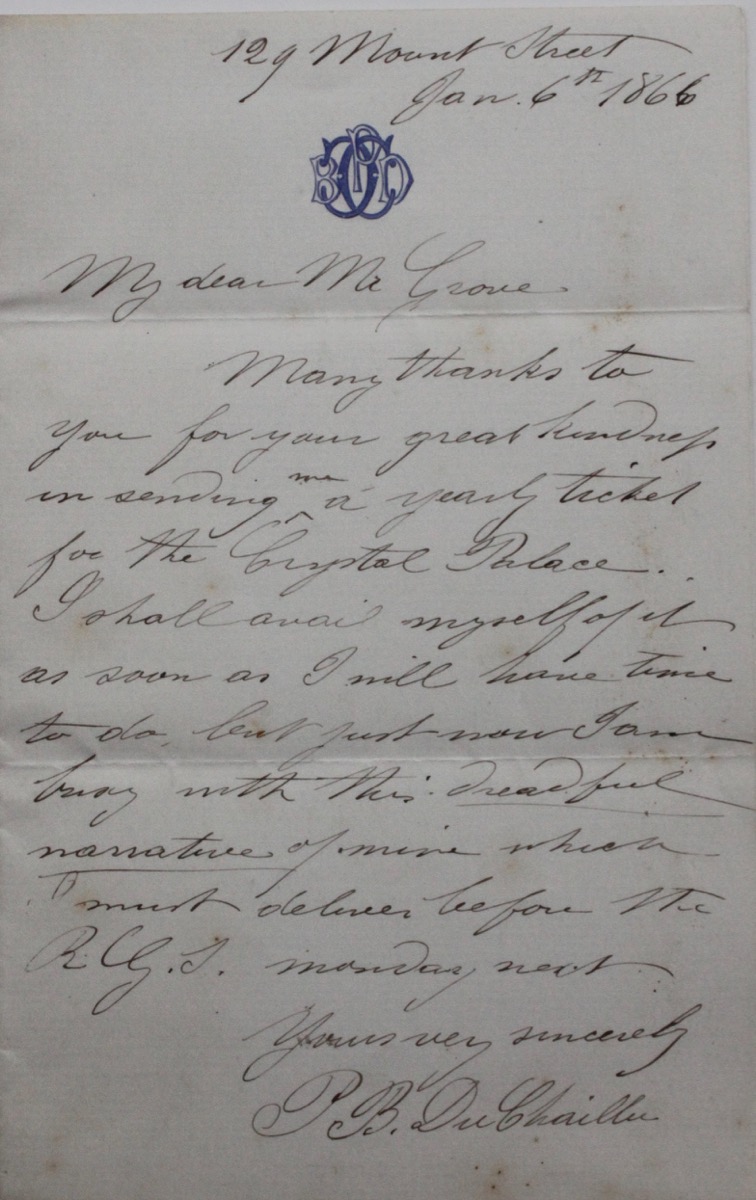 129 Mount Street
Jan. 6th 1866
My dear Mr Grove
Many thanks to
you for your great kindness
in sending me a yearly ticket
for the Crystal Palace.
I shall avail myself of it
as soon as I will have time
to do, but just now I am
busy with this dreadful
narrative of mine which
I must deliver before the
R.G.S. monday next
Yours very sincerely
P. B. Du Chaillu